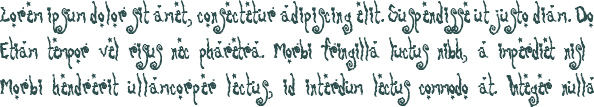 Lorem ipsum dolor sit amet, consectetur adipiscing elit. Suspendisse ut justo diam. Do
Etiam tempor vel risus nec pharetra. Morbi fringilla luctus nibh, a imperdiet nisl
Morbi hendrerit ullamcorper lectus, id interdum lectus commodo at. Integer nulla